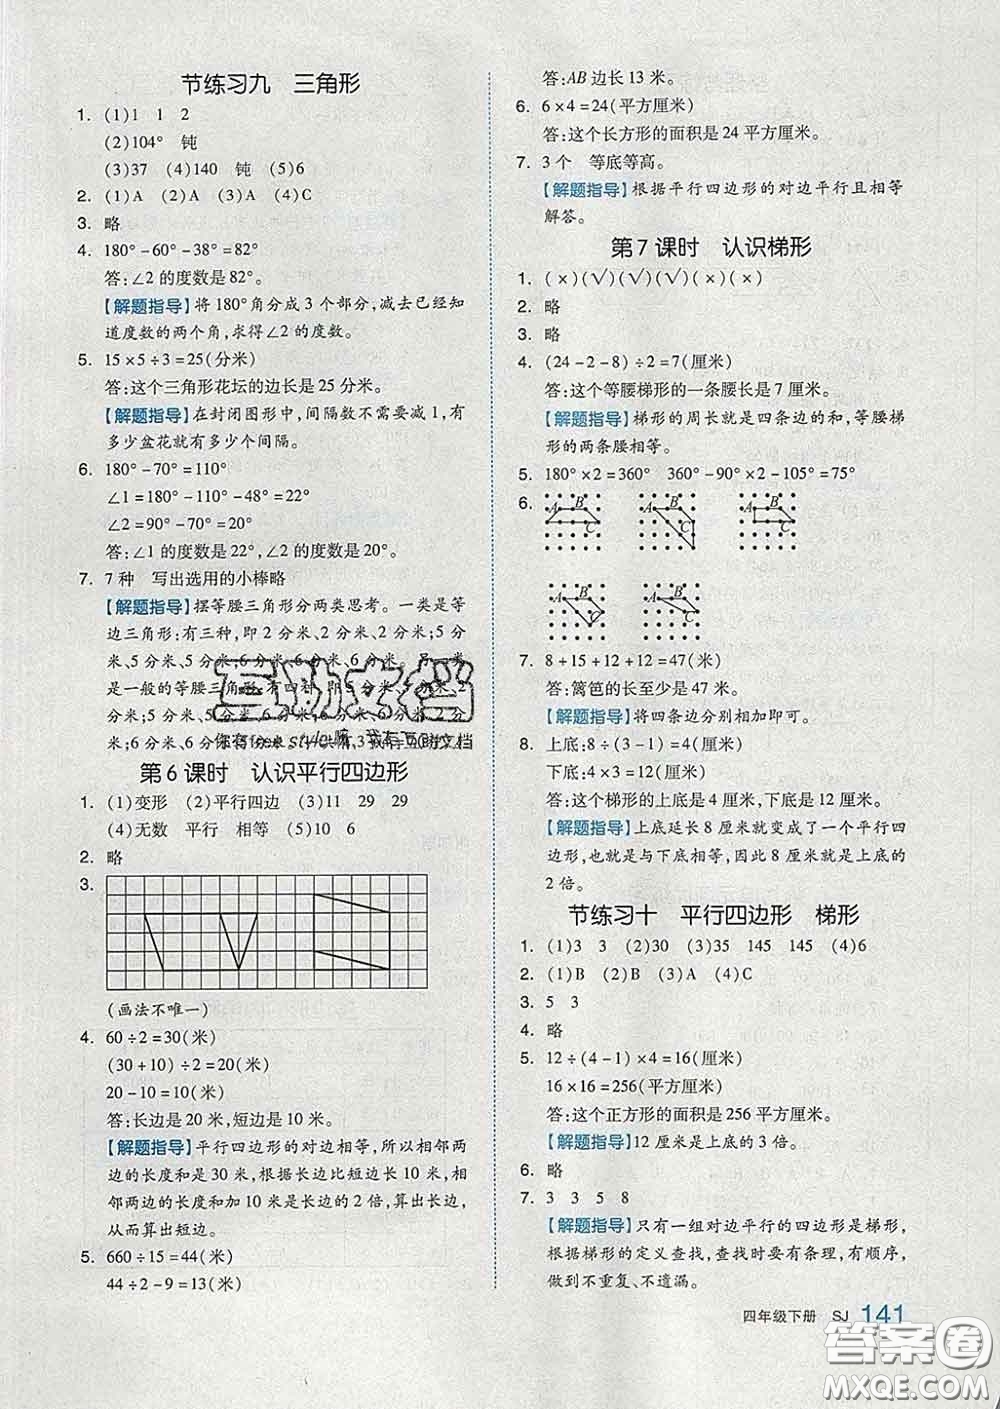 节练习九　三角形
1. (1)1　1　2
(2)104°　钝
(3)37　(4)140　钝　(5)6
2. (1)A　(2)A　(3)A　(4)C
3. 略
4. 180°-60°-38°=82°
答:∠2的度数是82°。
【解题指导】将180°角分成3个部分,减去已经知
道度数的两个角,求得∠2的度数。
5. 15×5÷3=25(分米)
答:这个三角形花坛的边长是25分米。
【解题指导】在封闭图形中,间隔数不需要减1,有
多少盆花就有多少个间隔。
6. 180°-70°=110°
∠1=180°-110°-48°=22°
∠2=90°-70°=20°
答:∠1的度数是22°,∠2的度数是20°。
7. 7种　写出选用的小棒略
【解题指导】摆等腰三角形分两类思考。一类是等
边三角形:有三种,即2分米、2分米、2分米;5分
米、5分米、5分米;6分米、6分米、6分米。另一类
是一般的等腰三角形
分米;5分米、5分米、6分米;6分米、6分米、2分
米;6分米、6分米、5分米
互助文档
你有style嘛,我有互助文档
第6课时　认识平行四边形
1. (1)变形　(2)平行四边　(3)11　29　29
(4)无数　平行　相等　(5)10　6
2. 略
3.
(画法不唯一)
4. 60÷2=30(米)
(30+10)÷2=20(米)
20-10=10(米)
答:长边是20米,短边是10米。
【解题指导】平行四边形的对边相等,所以相邻两
边的长度和是30米,根据长边比短边长10米,
相邻两边的长度和加10米是长边的2倍,算出长边,
从而算出短边。
5. 660÷15=44(米)
44÷2-9=13(米)
答:AB边长13米。
6. 6×4=24(平方厘米)
答:这个长方形的面积是24平方厘米。
7. 3个　等底等高。
【解题指导】根据平行四边形的对边平行且相等
解答。
第7课时　认识梯形
1. (×)(√)(√)(√)(×)(×)
2. 略
3. 略
4. (24-2-8)÷2=7(厘米)
答:这个等腰梯形的一条腰长是7厘米。
【解题指导】梯形的周长就是四条边的和,等腰梯
形的两条腰相等。
5. 180°×2=360°　360°-90°×2-105°=75°
6. A B C　A B C　A B C
A B C　A B C
7. 8+15+12+12=47(米)
答:篱笆的长至少是47米。
【解题指导】将四条边分别相加即可。
8. 上底:8÷(3-1)=4(厘米)
下底:4+8=12(厘米)
答:这个梯形的上底是4厘米,下底是12厘米。
【解题指导】上底延长8厘米就变成了一个平行四
边形,也就是与下底相等,因此8厘米是上底的
2倍。
节练习十　平行四边形　梯形
1. (1)3　3　(2)30　(3)35　145　145　(4)6
2. (1)B　(2)B　(3)A　(4)C
3. 5　3
4. 略
5. 12÷(4-1)×4=16(厘米)
16×16=256(平方厘米)
答:这个正方形的面积是256平方厘米。
【解题指导】12厘米是上底的3倍。
6. 略
7. 3　3　5　8
【解题指导】只有一组对边平行的四边形是梯形,
根据梯形的定义查找,查找时要有条理,有顺序,
做到不重复、不遗漏。
四年级下册　SJ　141
答案圈
MXQE.COM